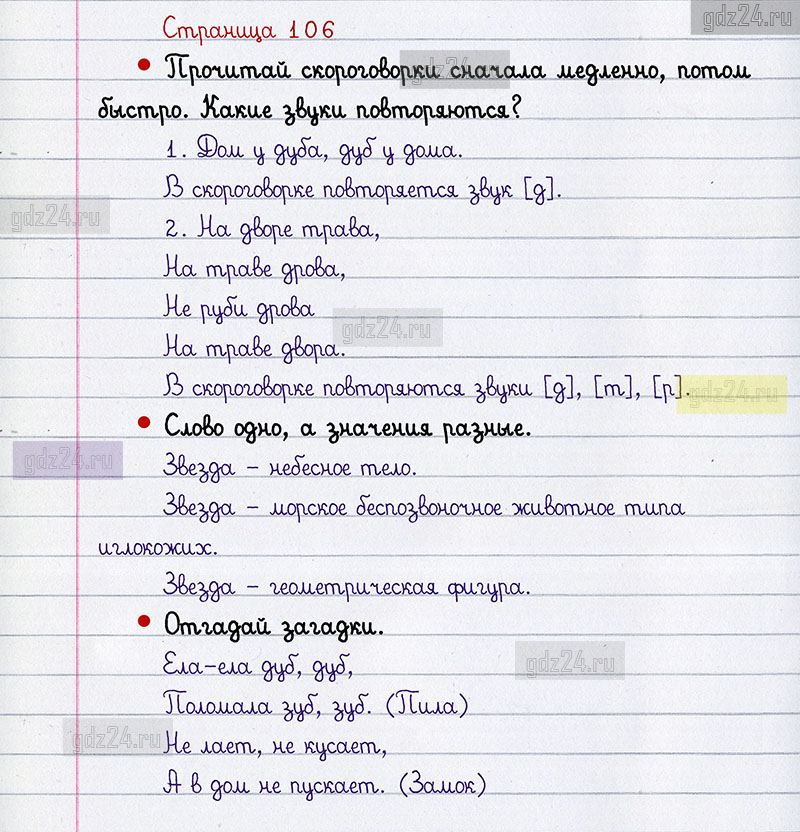 gdz24.ru
Страница 106
• Прочитай скороговорки сначала медленно, потом
gdz24.ru
быстро. Какие звуки повторяются?
1. Дом у дуба, дуб у дома.
В скороговорке повторяется звук [д].
gdz24.ru
2. На дворе трава,
На траве дрова,
Не руби дрова
gdz24.ru
На траве двора.
В скороговорке повторяются звуки [д], [т], [р].
gdz24.ru
• Слово одно, а значения разные.
gdz24.ru
Звезда – небесное тело.
Звезда – морское беспозвоночное животное типа
иглокожих.
Звезда – геометрическая фигура.
• Отгадай загадки.
Ела-ела дуб, дуб,
gdz24.ru
Поломала зуб, зуб. (Пила)
gdz24.ru
Не лает, не кусает,
А в дом не пускает. (Замок)